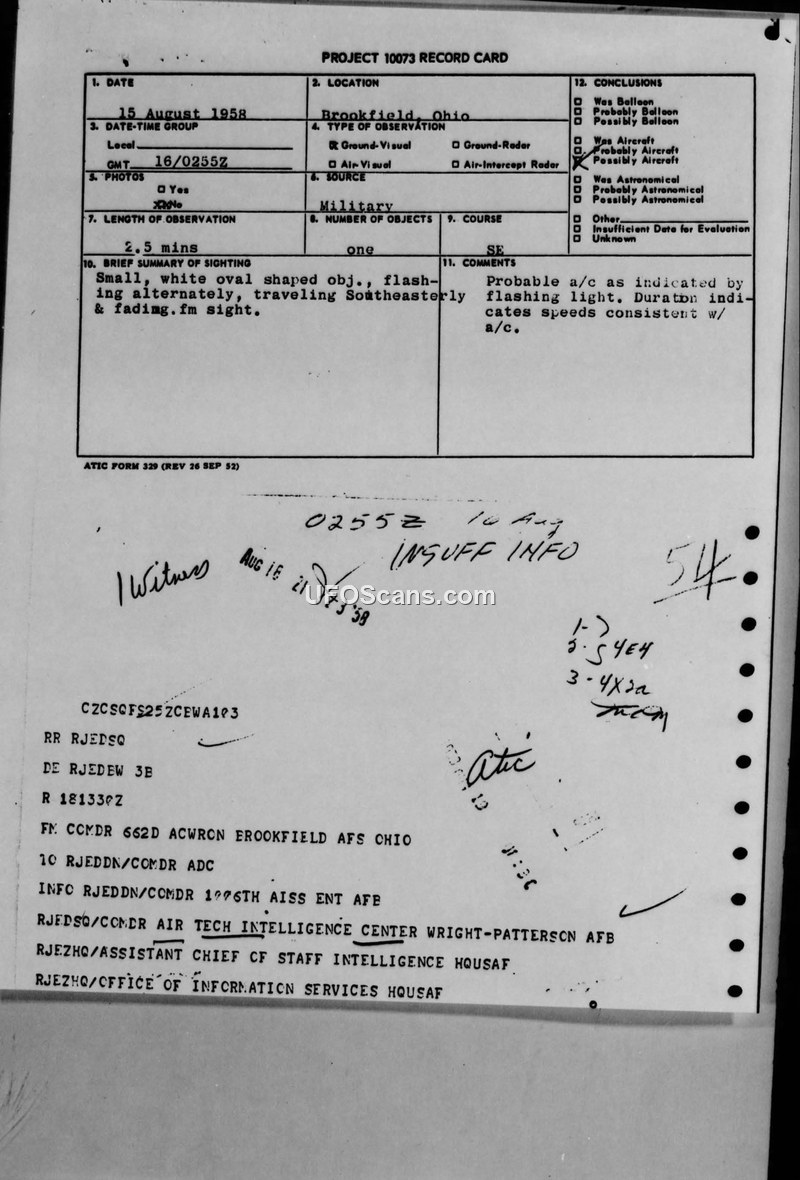 PROJECT 10073 RECORD CARD
1. DATE
15 August 1958
2. LOCATION
Brookfield, Ohio
12. CONCLUSIONS
Was Balloon
Probably Balloon
Possibly Balloon
Was Aircraft
Probably Aircraft
Possibly Aircraft
Was Astronomical
Probably Astronomical
Possibly Astronomical
Other
Insufficient Data for Evaluation
Unknown
3. DATE-TIME GROUP
Local
GMT 16/0255Z
4. TYPE OF OBSERVATION
Ground-Visual Ground-Radar
Air-Visual Air-Intercept Radar
5. PHOTOS
Yes
No
6. SOURCE
Military
7. LENGTH OF OBSERVATION
2.5 mins
8. NUMBER OF OBJECTS
one
9. COURSE
SE
10. BRIEF SUMMARY OF SIGHTING
Small, white oval shaped obj., flash-
ing alternately, traveling Southeasterly
& fading.fm sight.
11. COMMENTS
Probable a/c as indicated by
flashing light. Duraton indi-
cates speeds consistent w/
a/c.
ATIC FORM 329 (REV 26 SEP 52)
0255Z 16 Aug
INSUFF INFO
1 Witness
AUG 18
54
UFOScans.com
S4E4
3-4X2a
CZCSQFS25ZCEWA1
RR RJEDSQ
DE RJEDEW 3B
Atic
R 181330Z
FM CCMDR 662D ACWRCN BROOKFIELD AFS OHIO
TO RJEDDN/CCMDR ADC
INFC RJEDDN/CCMDR 1006TH AISS ENT AFB
RJEDSQ/CCMDR AIR TECH INTELLIGENCE CENTER WRIGHT-PATTERSCN AFB
RJEZHQ/ASSISTANT CHIEF CF STAFF INTELLIGENCE HQUSAF
RJEZHQ/CFFICE OF INFCRMATICN SERVICES HQUSAF